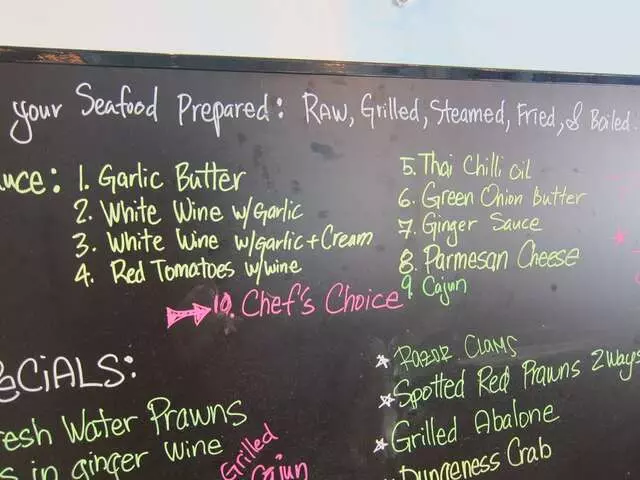 your Seafood Prepared: Raw, Grilled, Steamed, Fried, & Boiled
1. Garlic Butter
2. White Wine w/Garlic
3. White Wine w/garlic + Cream
4. Red Tomatoes w/wine
5. Thai Chilli Oil
6. Green Onion Butter
7. Ginger Sauce
8. Parmesan Cheese
9. Cajun
10. Chef's Choice
Water Prawns
in ginger wine
Grilled
Cajun
Razor Clams
Spotted Red Prawns 2 Ways
Grilled Abalone
Dungeness Crab